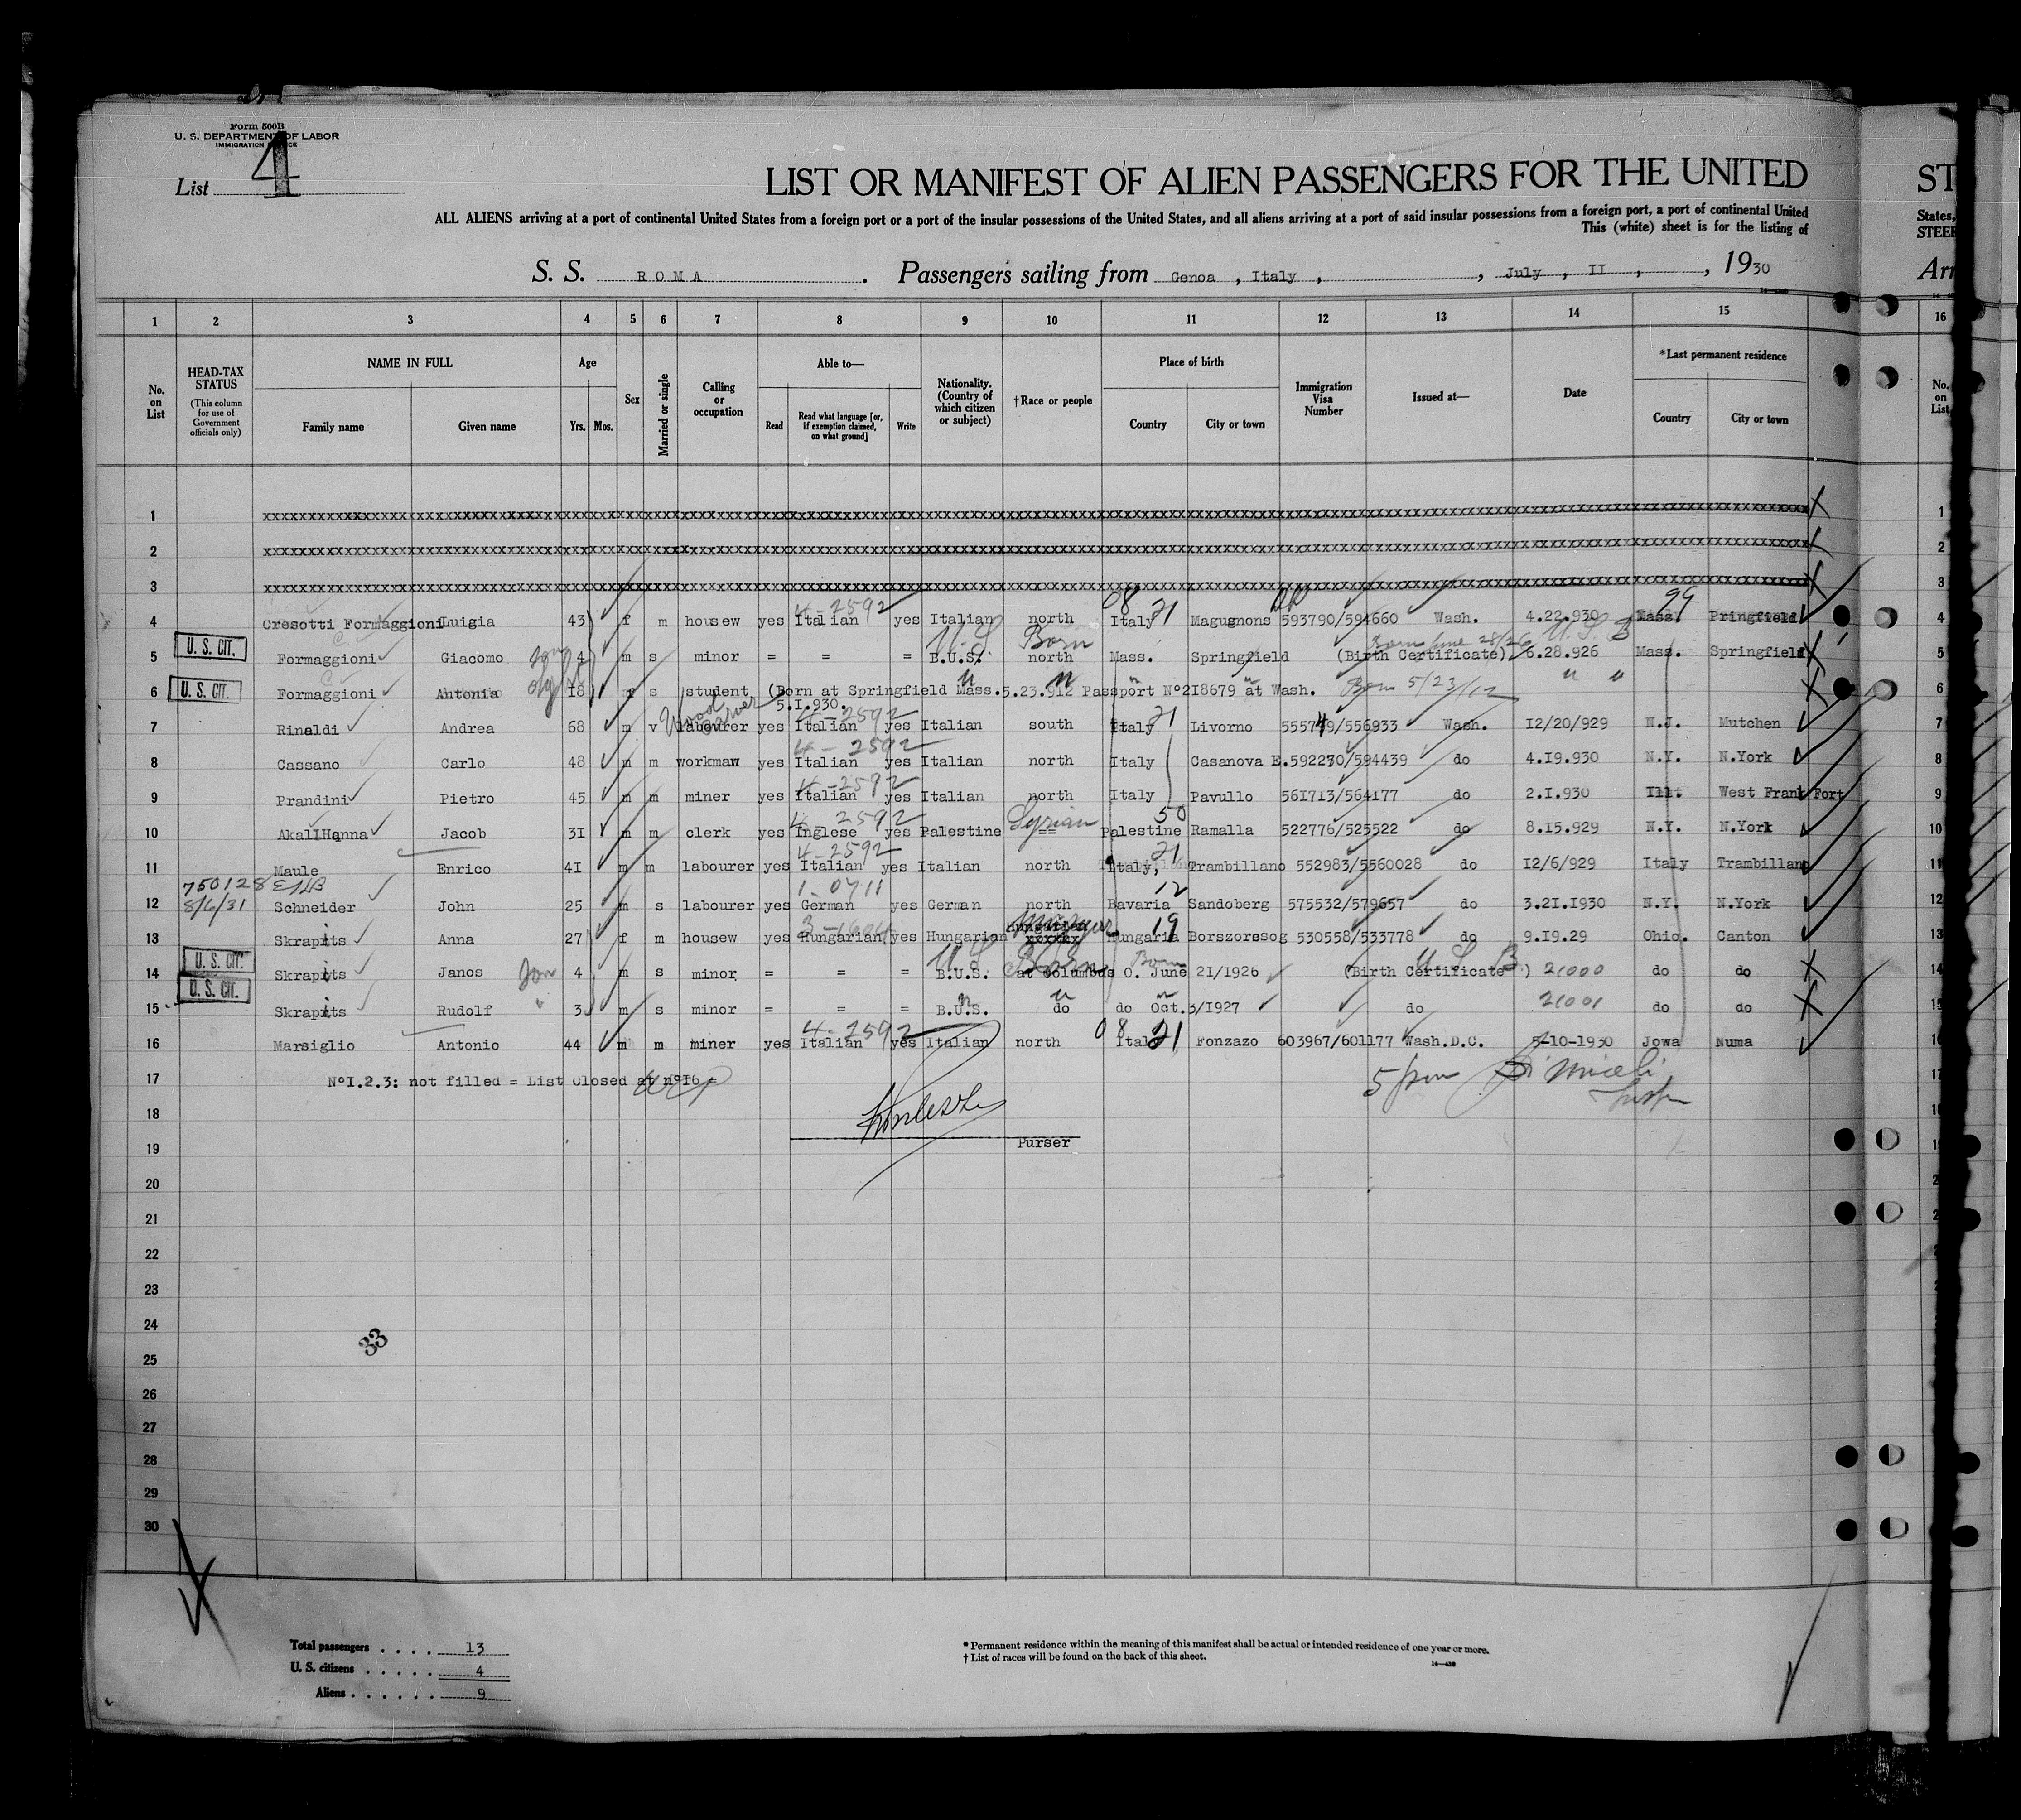 Form 500B
U. S. DEPARTMENT OF LABOR
IMMIGRATION
List 4
LIST OR MANIFEST OF ALIEN PASSENGERS FOR THE UNITED ST
ALL ALIENS arriving at a port of continental United States from a foreign port or a port of the insular possessions of the United States, and all aliens arriving at a port of said insular possessions from a foreign port, a port of continental United States,
This (white) sheet is for the listing of STEE
S. S. ROMA . Passengers sailing from Genoa , Italy , , July , II , , 1930 Arr
1 2 3 4 5 6 7 8 9 10 11 12 13 14 15 16
No. on List
HEAD-TAX STATUS (This column for use of Government officials only)
NAME IN FULL Family name Given name
Age Yrs. Mos.
Sex
Married or single
Calling or occupation
Able to— Read Read what language [or, if exemption claimed, on what ground] Write
Nationality. (Country of which citizen or subject)
†Race or people
Place of birth Country City or town
Immigration Visa Number
Issued at—
Date
*Last permanent residence Country City or town
No. on List
1 xxxxxxxxxxxxxxxxxxxxxxxxxxxxxxxxxxxxxxxx X 1
2 xxxxxxxxxxxxxxxxxxxxxxxxxxxxxxxxxxxxxxxx X 2
3 xxxxxxxxxxxxxxxxxxxxxxxxxxxxxxxxxxxxxxxx X 3
4-2592 08 21 99
4 Cresotti Formaggioni Luigia 43 f m housew yes Italian yes Italian north Italy Magugnons 593790/594660 Wash. 4.22.930 Mass. Pringfield 4
U. S. CIT. U.S. Born Born June 28/26 U.S. B
5 Formaggioni Giacomo 4 m s minor = = = B.U.S. north Mass. Springfield (Birth Certificate) 6.28.926 Mass. Springfield X 5
U. S. CIT. " " " " " "
6 Formaggioni Antonio 18 f s student (Born at Springfield Mass.5.23.912 Passport N°218679 at Wash. Born 5/23/12 X 6
5.I.930.
Wood Carver 4-2592 21
7 Rinaldi Andrea 68 m v labourer yes Italian yes Italian south Italy Livorno 555749/556933 Wash. I2/20/929 N.J. Mutchen 7
4-2592
8 Cassano Carlo 48 m m workmaw yes Italian yes Italian north Italy Casanova E. 592270/594439 do 4.I9.930 N.Y. N.York 8
4-2592
9 Prandini Pietro 45 m m miner yes Italian yes Italian north Italy Pavullo 56I713/564177 do 2.I.930 Ill. West Frank Fort 9
4-2592 Syrian 50
10 Akall Hanna Jacob 3I m m clerk yes Inglese yes Palestine == Palestine Ramalla 522776/525522 do 8.15.929 N.Y. N.York 10
4-2592 21
11 Maule Enrico 4I m m labourer yes Italian yes Italian north Italy, Trambillano 552983/5560028 do I2/6/929 Italy Trambillano 11
750128 8/6/31 1-0711 12
12 Schneider John 25 m s labourer yes German yes German north Bavaria Sandoberg 575532/579657 do 3.2I.I930 N.Y. N.York 12
Magyar 19
13 Skrapits Anna 27 f m housew yes Hungarian yes Hungarian xxxxxx Hungaria Borszorssog 530558/533778 do 9.I9.29 Ohio. Canton 13
U. S. CIT. U S Born Born U S B
14 Skrapits Janos 4 m s minor = = = B.U.S. at Columbus O. June 21/1926 (Birth Certificate ) 21000 do do X 14
U. S. CIT. " " "
15 Skrapits Rudolf " 3 m s minor = = = B.U.S. do do Oct.3/I927 do 21001 do do X 15
4-2592 08 21
16 Marsiglio Antonio 44 m m miner yes Italian yes Italian north Italy Fonzazo 603967/601177 Wash.D.C. 5-10-1930 Jowa Numa 16
17 N°I.2.3: not filled = List closed at n°I6 = 5 pm 17
18 18
19 Purser
20
21
22
23
24
33
25
26
27
28
29
30
Total passengers . . . . 13
U. S. citizens . . . . . 4
Aliens . . . . . . 9
* Permanent residence within the meaning of this manifest shall be actual or intended residence of one year or more.
† List of races will be found on the back of this sheet.
14—430